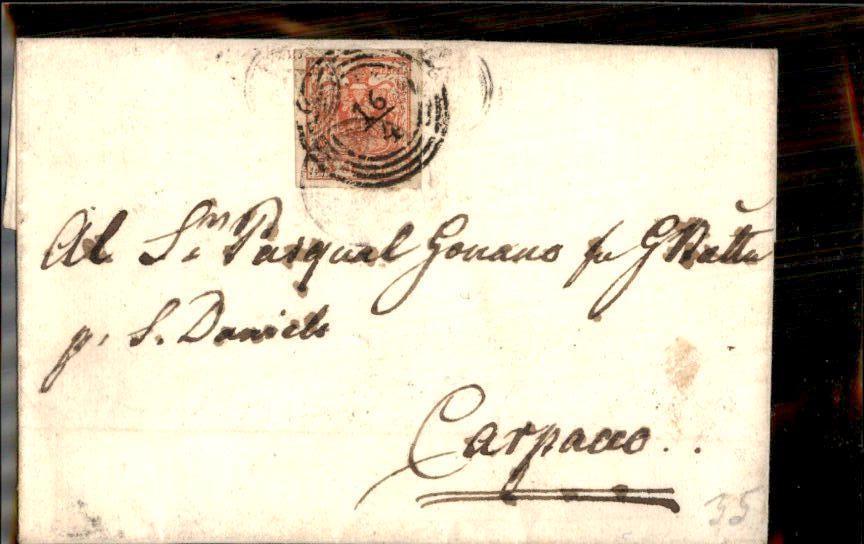 16/4
Al Sr Pasqual Gonano fu G Batta
p. S. Daniele
Carpaco..
35